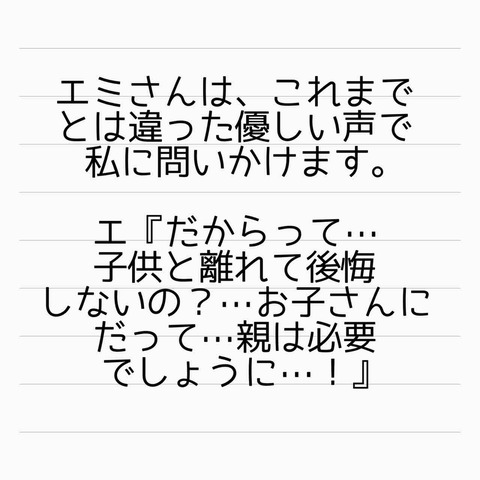 エミさんは、これまで
とは違った優しい声で
私に問いかけます。
エ『だからって…
子供と離れて後悔
しないの？…お子さんに
だって…親は必要
でしょうに…！』